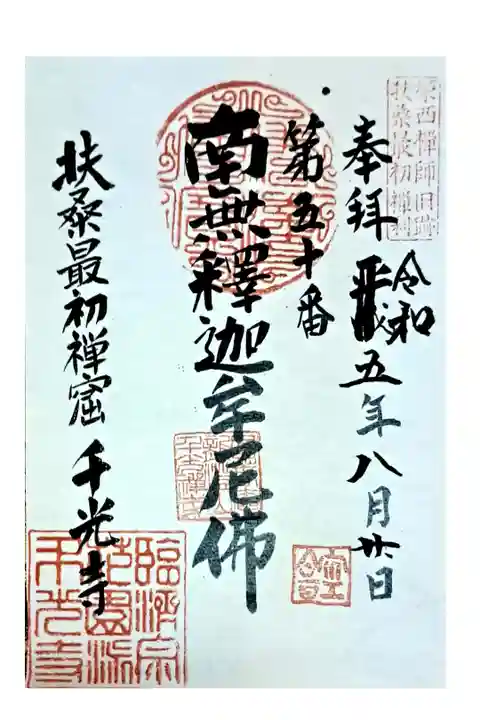 榮西禅師旧跡
扶桑最初禅刹
奉拝
令和五年八月廿日
第五十番
南無釋迦牟尼佛
扶桑最初禅窟 千光寺
臨済宗
千光寺